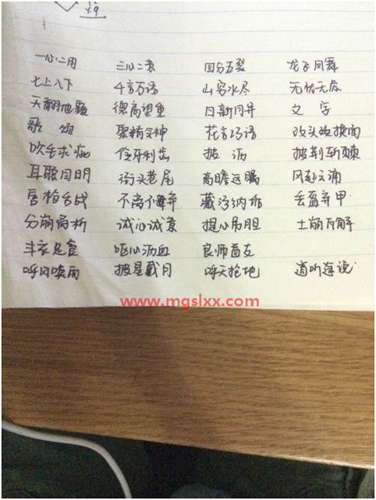 一心二用 三心二意 四分五裂 龙飞凤舞
七上八下 千言万语 山穷水尽 无忧无虑
天翻地覆 德高望重 日新月异 文 字
歌 颂 聚精会神 花言巧语 改头换面
吹毛求疵 伶牙利齿 披荆斩棘
耳聪目明 街头巷尾 高瞻远瞩 风起云涌
唇枪舌战 藏污纳垢 丢盔弃甲
分崩离析 诚心诚意 提心吊胆 土崩瓦解
丰衣足食 呕心沥血 良师益友
呼风唤雨 披星戴月 呼天抢地 道听途说
www.mgslxx.com